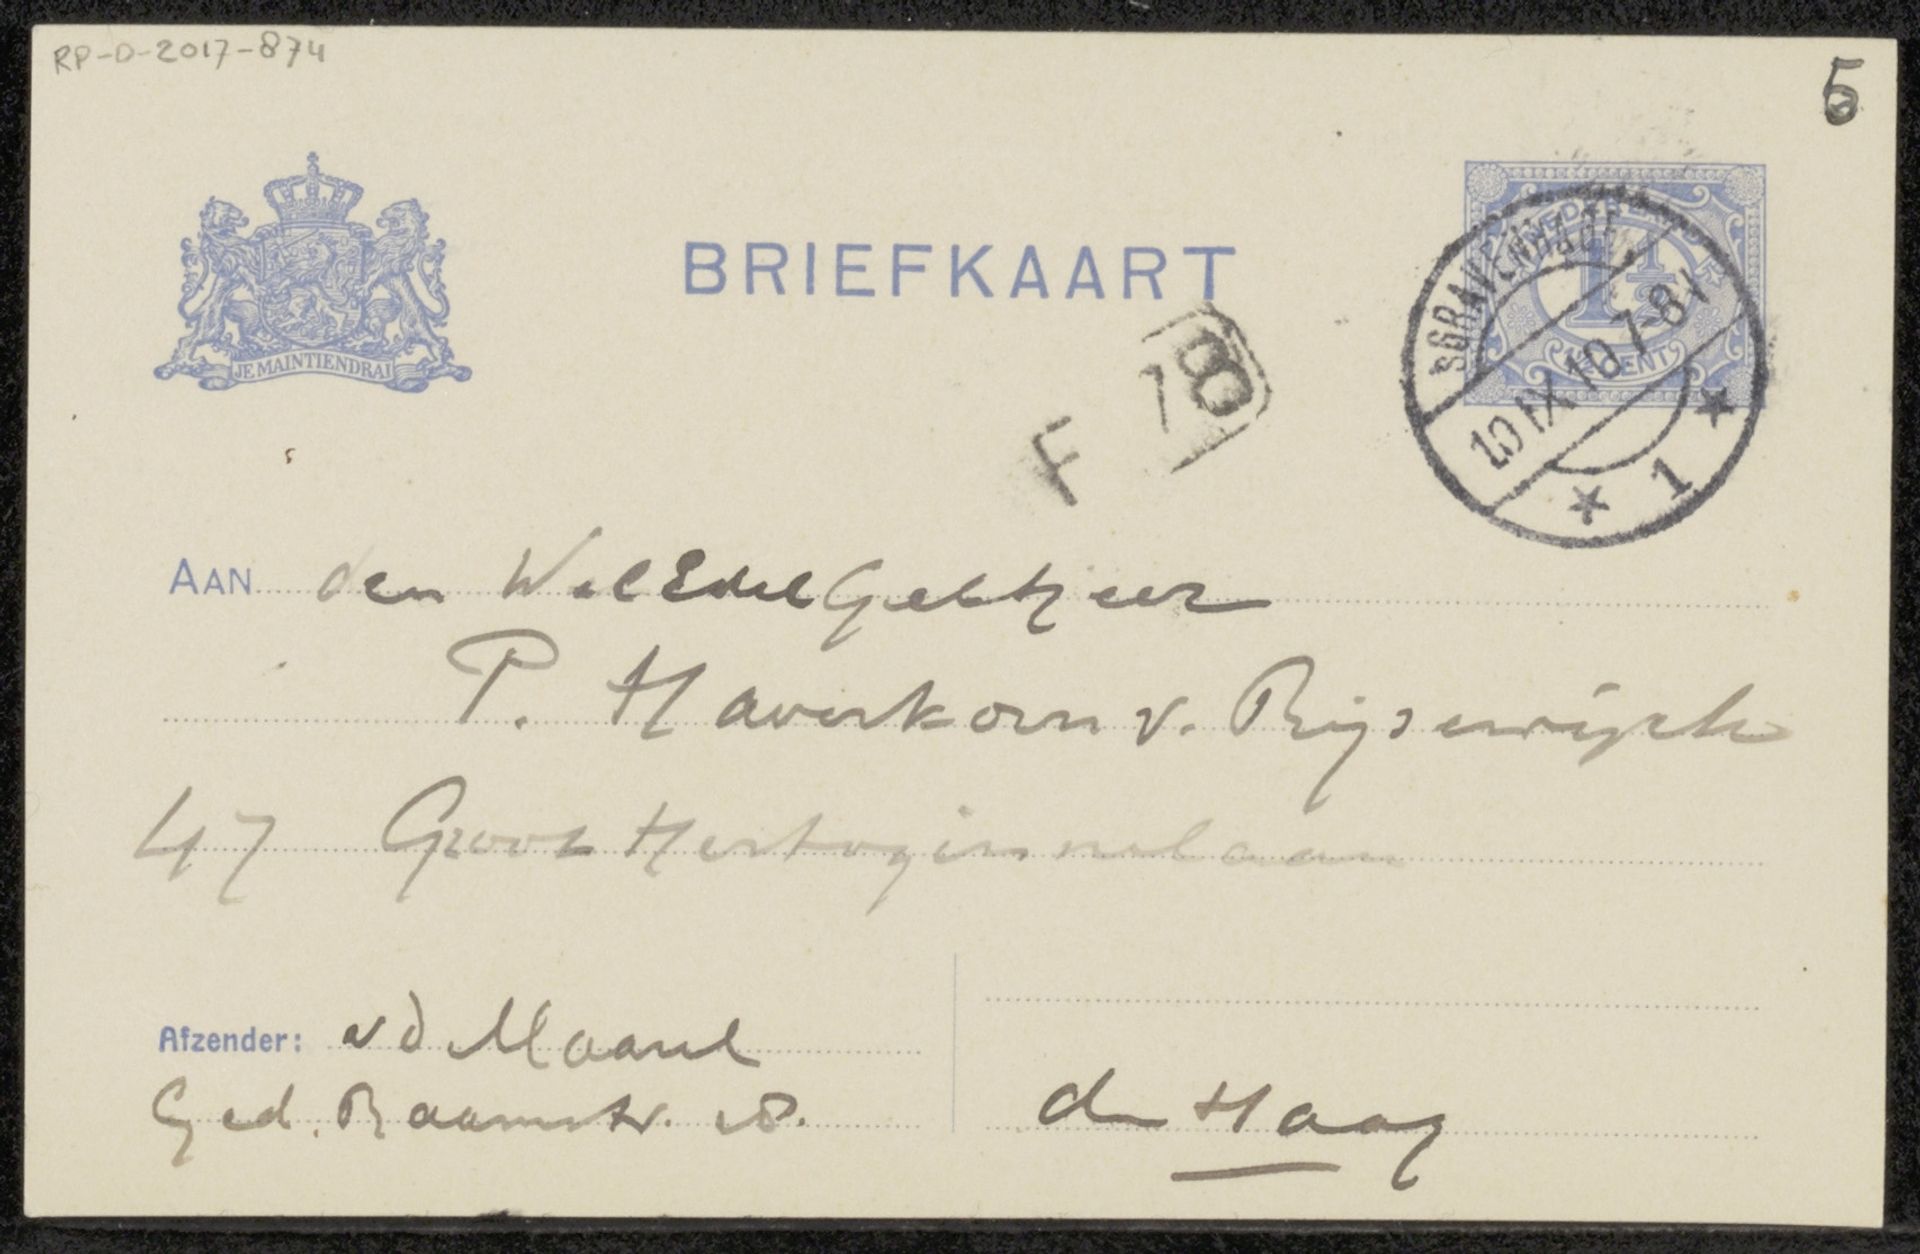 RP-D-2017-874
5
JE MAINTIENDRAI
BRIEFKAART
NEDERLAND
1½
CENT
'SGRAVENHAGE
10 IX 10 7-8V
1
F
78
AAN den WelEdelGeb Heer
P. Haverkorn v. Rijsewijk
47 Groot Hertoginnelaan
Afzender: vd Maarel
Ged. Raamstr. 18.
den Haag